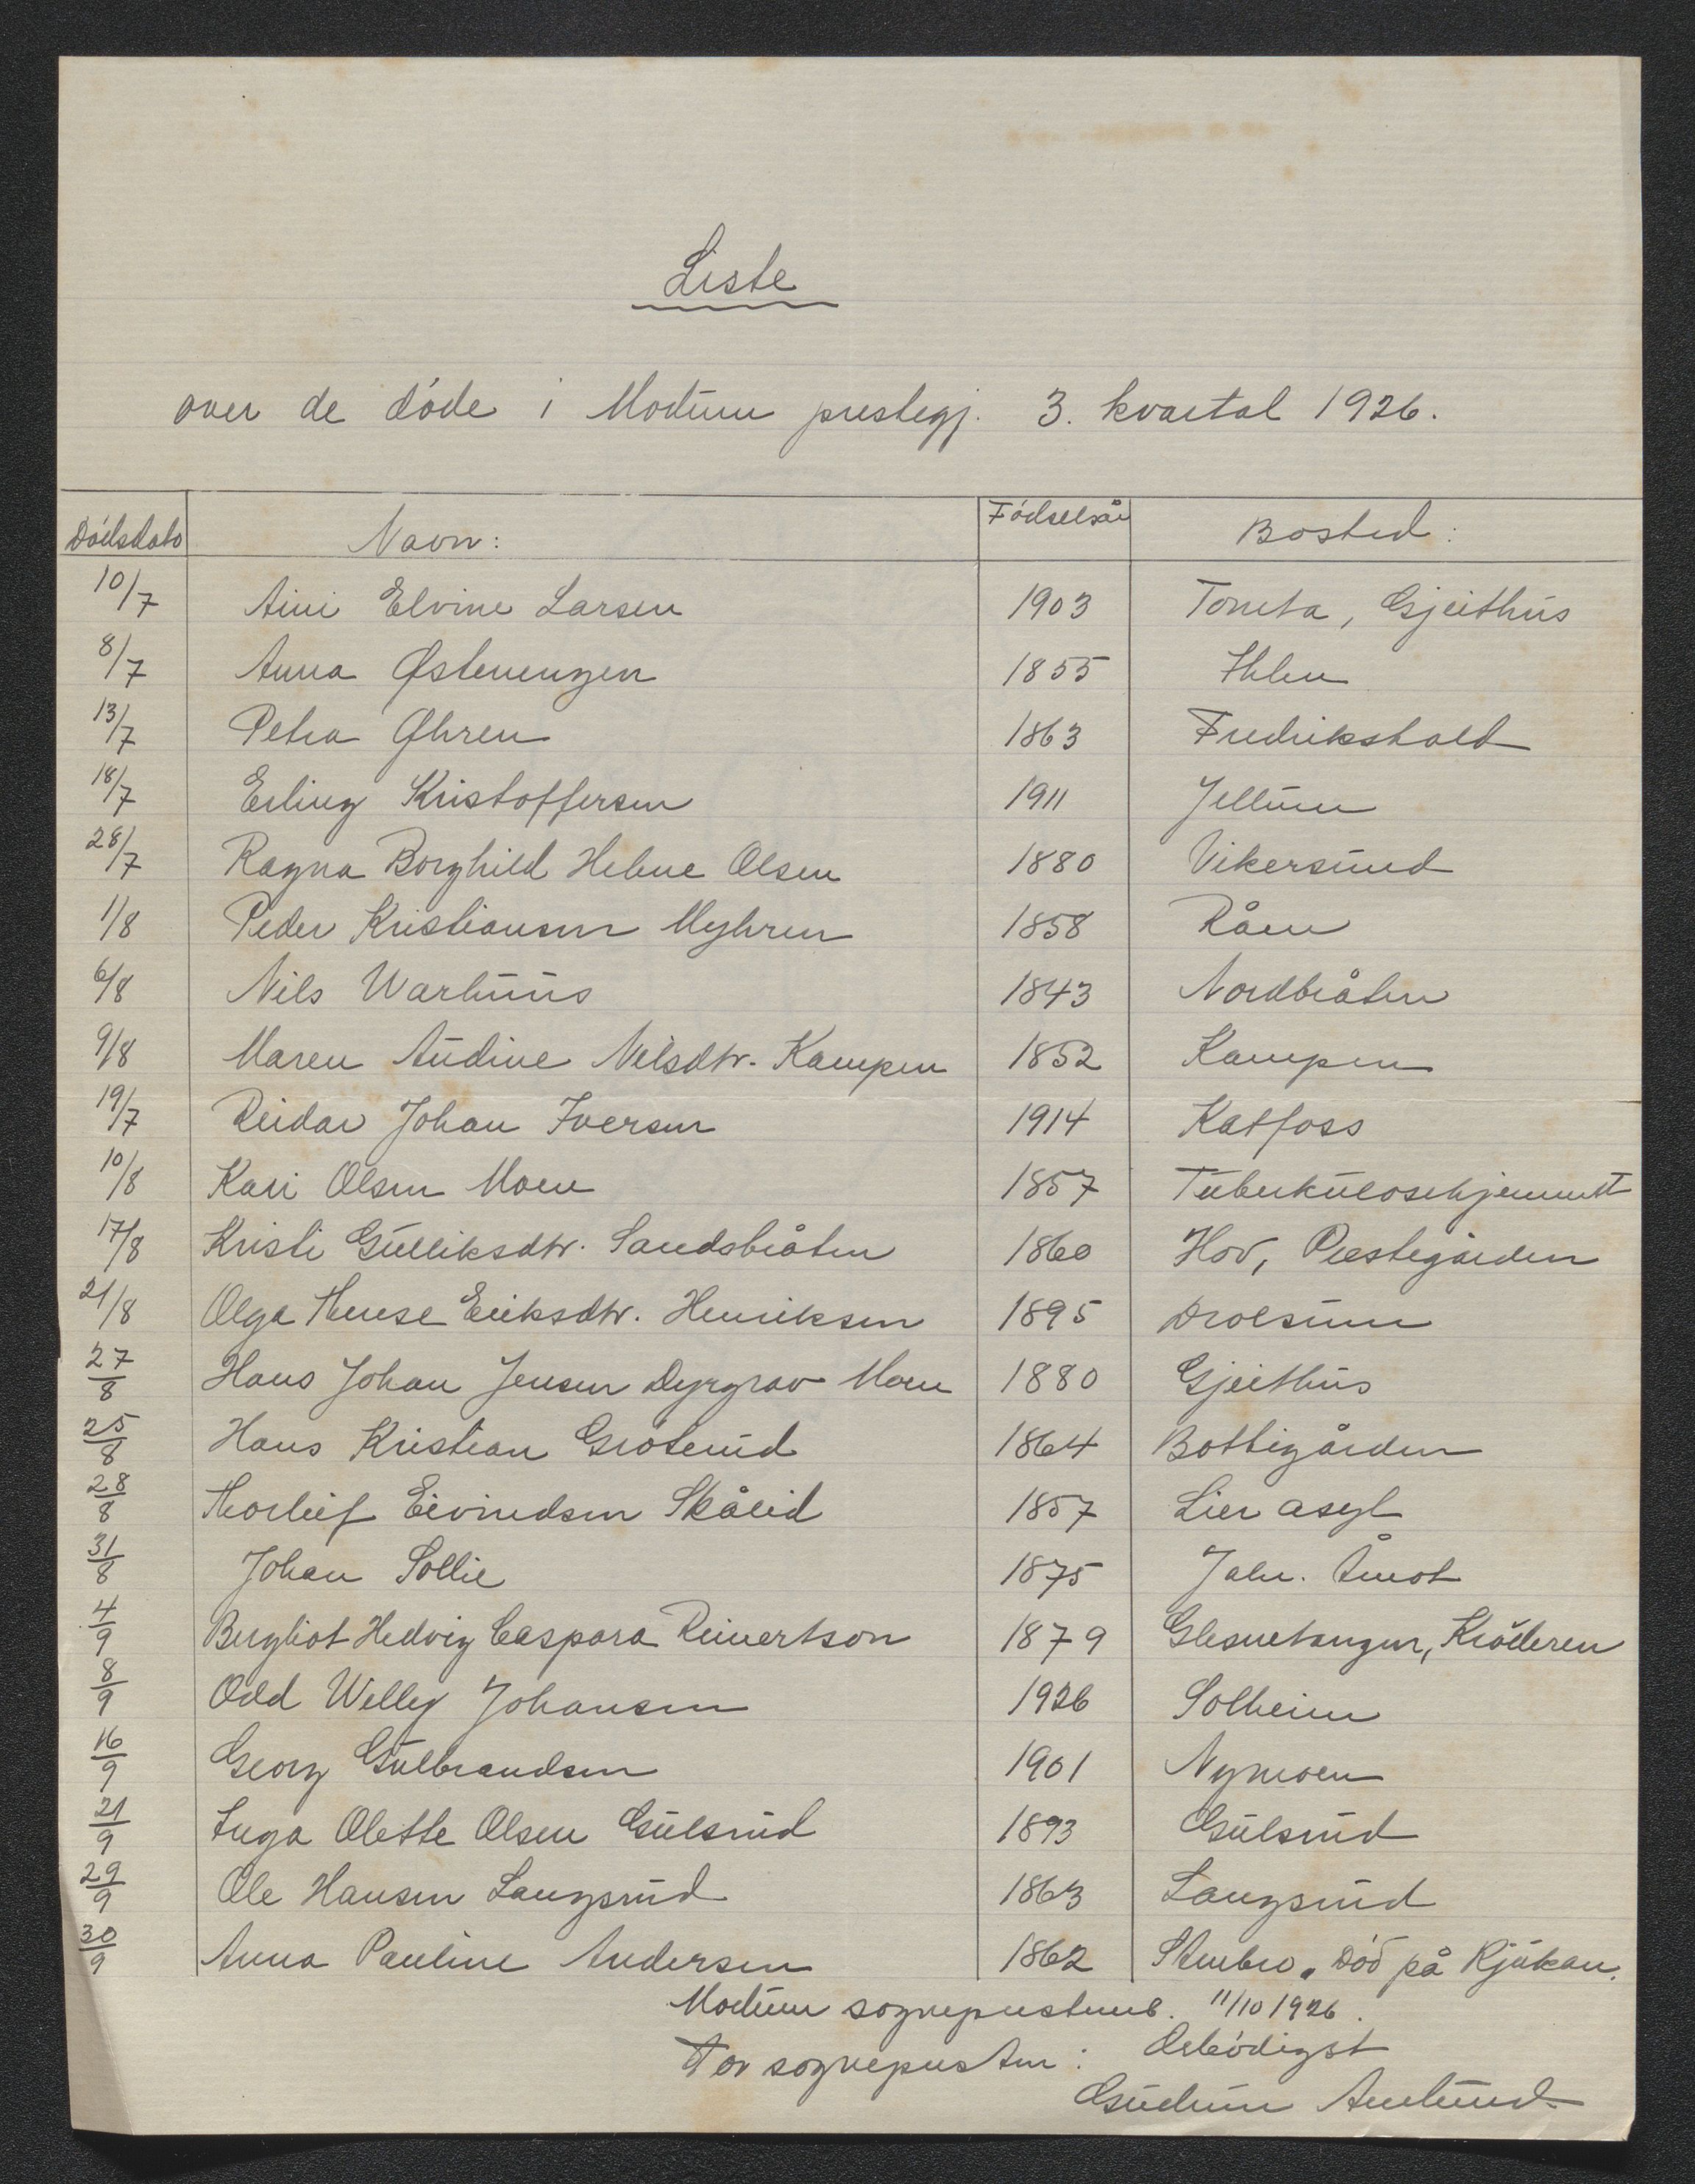 Liste
over de døde i Modum prestegj. 3. kvartal 1926.
Dødsdato Navn: Fødselsår Bosted:
10/7 Aini Elvine Larsen 1903 Tomta, Gjeithus
8/7 Anna Østenengen 1855 Ihlen
13/7 Petra Øhren 1863 Fredrikshald
18/7 Erling Kristoffersen 1911 Jellum
28/7 Ragna Borghild Helene Olsen 1880 Vikersund
1/8 Peder Kristiansen Myhren 1858 Råen
6/8 Nils Warhuus 1843 Nordbråten
9/8 Maren Andine Nilsdtr. Kampen 1852 Kampen
19/7 Reidar Johan Iversen 1914 Katfoss
10/8 Kari Olsen Moen 1857 Tuberkulosehjemmet
17/8 Kristi Gulliksdtr. Sandsbråten 1860 Hov, Prestegården
21/8 Olga Therese Eriksdtr. Henriksen 1895 Drolsum
27/8 Hans Johan Jensen Dyrgrav Moen 1880 Gjeithus
25/8 Hans Kristian Grøterud 1864 Bottegården
28/8 Thorleif Eivindsen Skålid 1857 Lier asyl
31/8 Johan Sollie 1875 Jahr. Åmot
4/9 Bergliot Hedvig Caspara Reinertson 1879 Glesnetangen, Krøderen
8/9 Odd Willy Johansen 1926 Solheim
16/9 Georg Gulbrandsen 1901 Nymoen
21/9 Inga Olette Olsen Gulsrud 1893 Gulsrud
29/9 Ole Hansen Langsrud 1863 Langsrud
30/9 Anna Pauline Andersen 1862 Stenbro. Død på Rjukan.
Modum sogneprestemb. 11/10 1926.
For sognepresten: Ærbødigst
Gudrun Amlund